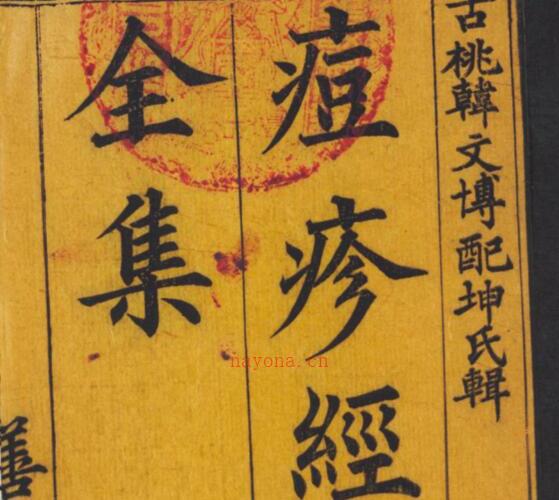 古桃韓文博配坤氏輯
痘疹經
全集
善
nayona.cn